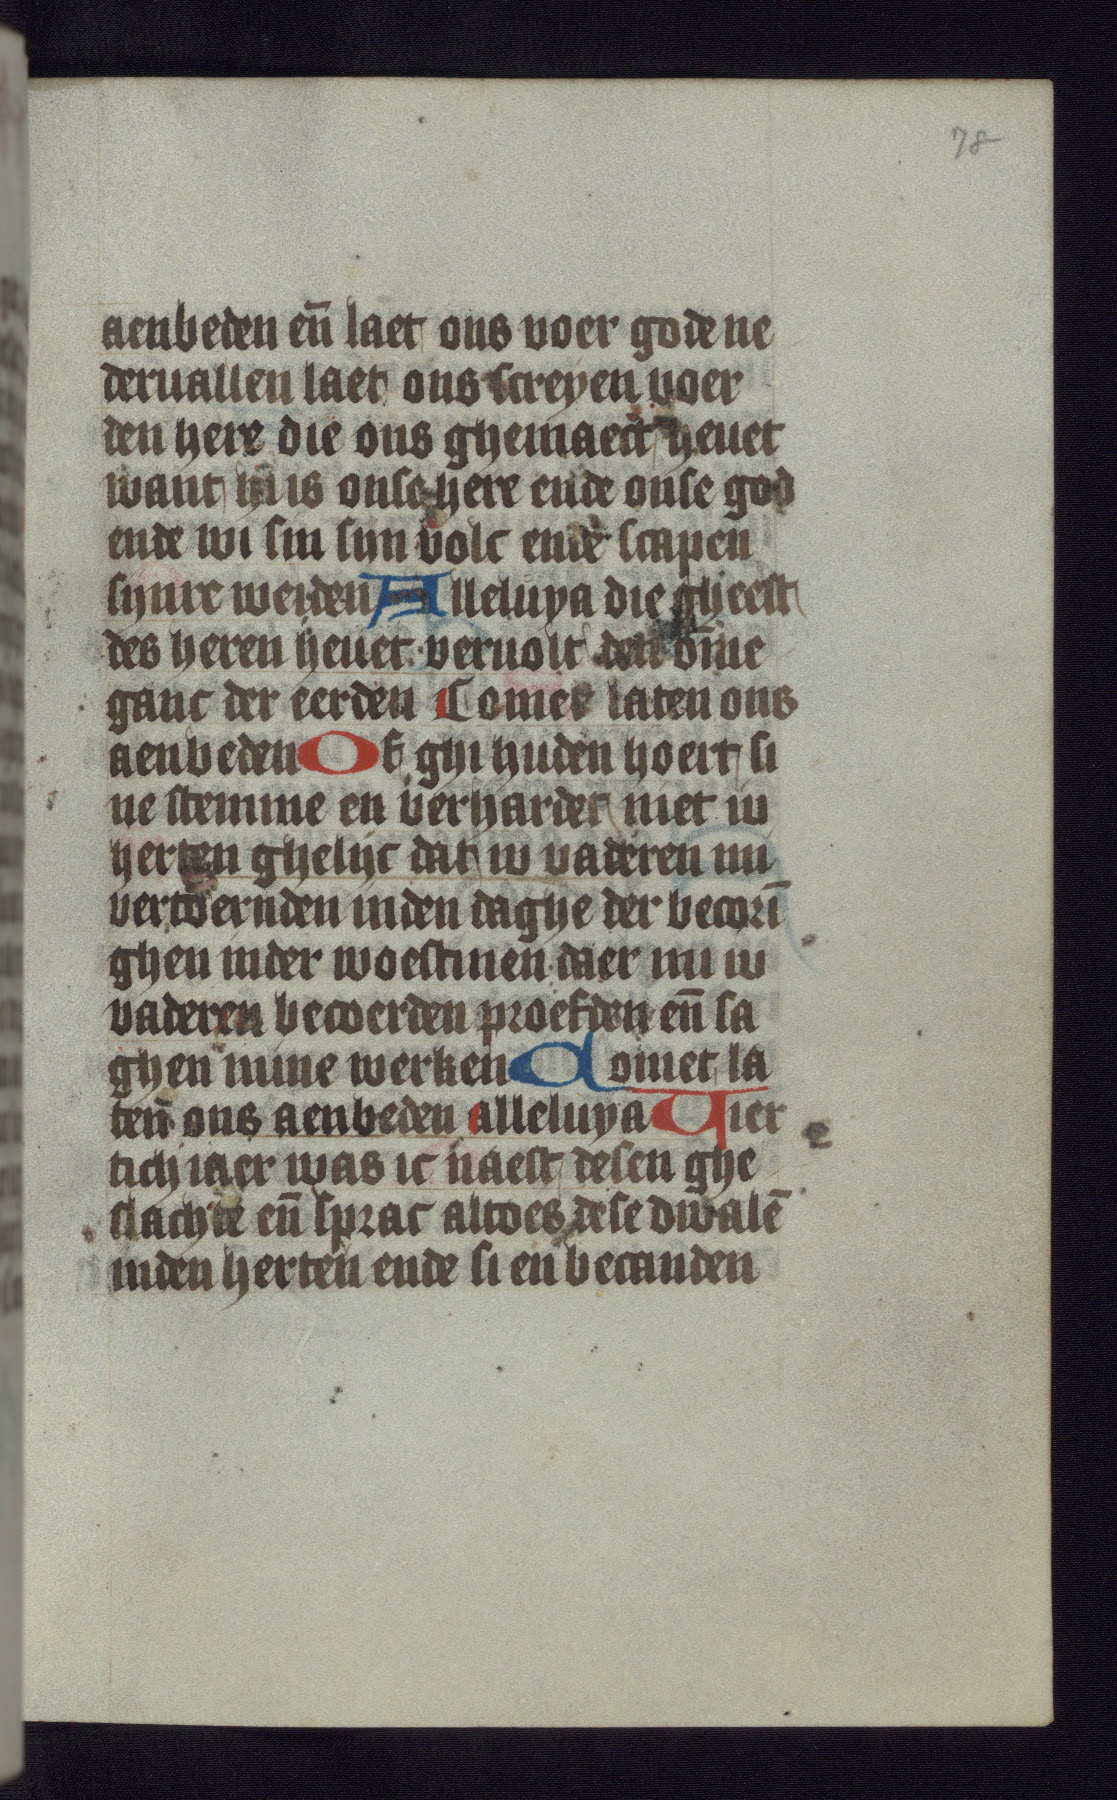 78
aenbeden en̄ laet ons voer gode ne
deruallen laet ons screyen voer
den here die ons ghemaect heuet
want hi is onse here ende onse god
ende wi sin sijn volc ende scapen
sijnre weiden Alleluya die gheest
des heren heuet veruolt den om̄e
ganc der eerden Comet laten ons
aenbeden Of ghi huden hoert si
ne stemme en verhardet niet iw
herten ghelijc dat iw vaderen mi
vertoernden inden daghe der becorī
ghen inder woestinen daer mi iw
vaderen becoerden proefden en̄ sa
ghen mine werken Comet la
ten̄ ons aenbeden alleluya Vier
tich iaer was ic naest desen ghe
slachte en̄ sprac altoes dese dwalē
inden herten ende si en becanden